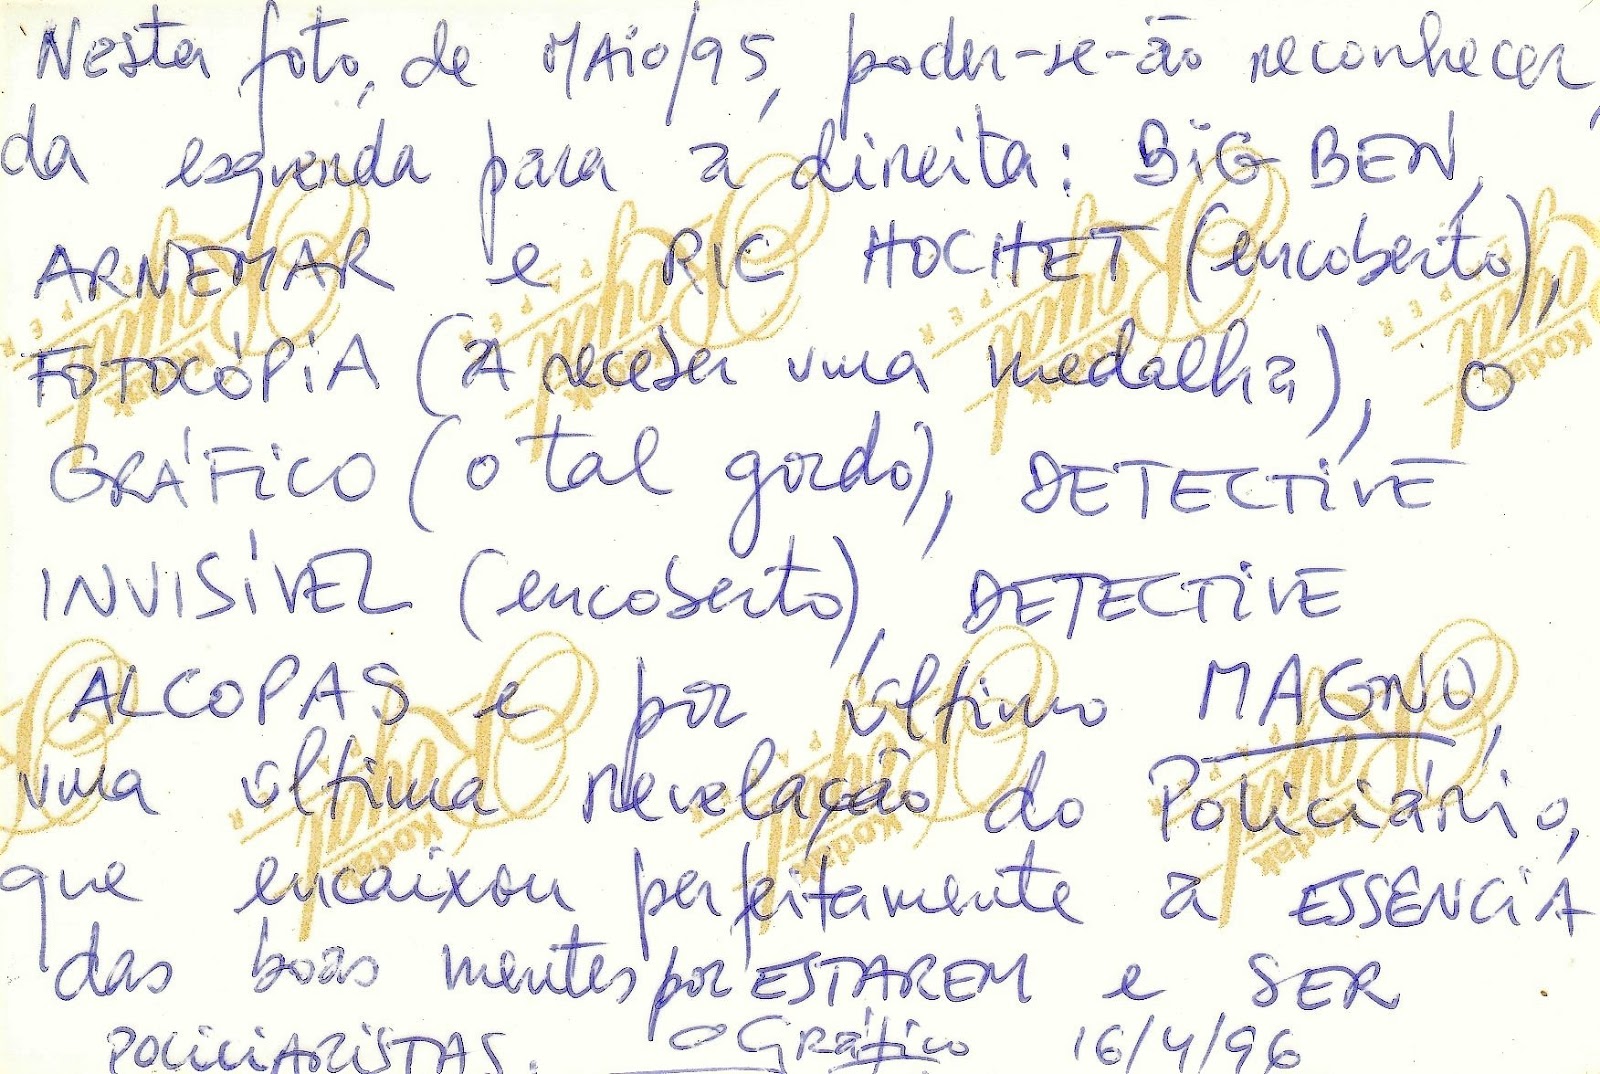 Nesta foto, de MAIO/95, poder-se-ão reconhecer,
da esquerda para a direita: BIG BEN,
ARNEMAR e RIC HOCHET (encoberto),
FOTOCÓPIA (a receber uma medalha), O
GRÁFICO (o tal gordo), DETECTIVE
INVISÍVEL (encoberto), DETECTIVE
ALCOPAS e por último MAGNO,
uma última revelação do Policiário,
que encaixou perfeitamente a ESSENCIA
das boas mentes por ESTAREM e SER
POLICIARISTAS. O Gráfico 16/4/96
Kodak Royal PAPER